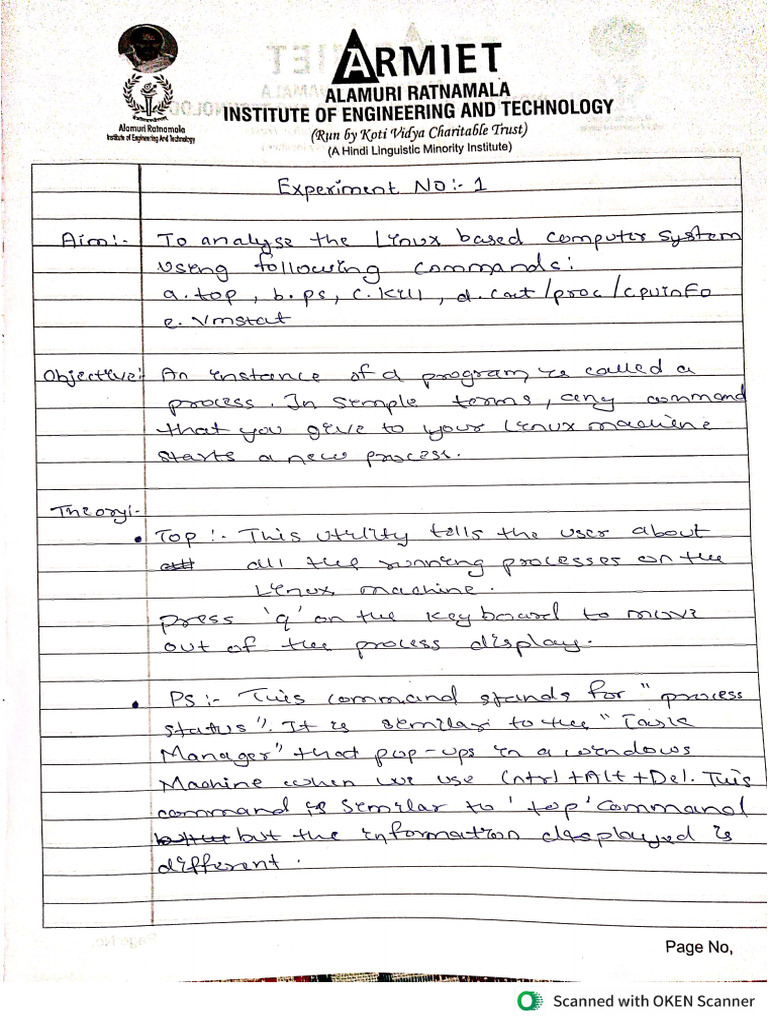 ARMIET
ALAMURI RATNAMALA
INSTITUTE OF ENGINEERING AND TECHNOLOGY
(Run by Koti Vidya Charitable Trust)
(A Hindi Linguistic Minority Institute)
Alamuri Ratnamala
Institute of Engineering And Technology
Experiment No:- 1
Aim:- To analyse the Linux based computer system
using following commands:
a. top, b. ps, c. kill, d. cat/proc/cpuinfo
e. vmstat
Objective:- An instance of a program, is called a
process. In simple terms, any command
that you give to your Linux machine
starts a new process.
Theory:-
• Top :- This utility tells the user about
all the running processes on the
Linux machine.
press 'q' on the keyboard to move
out of the process display.
• PS :- This command stands for "process
status". It is similar to the "Task
Manager" that pop-ups in a windows
Machine when we use Cntrl+Alt+Del. This
command is similar to 'top' Command
but the information displayed is
different.
Page No,
Scanned with OKEN Scanner